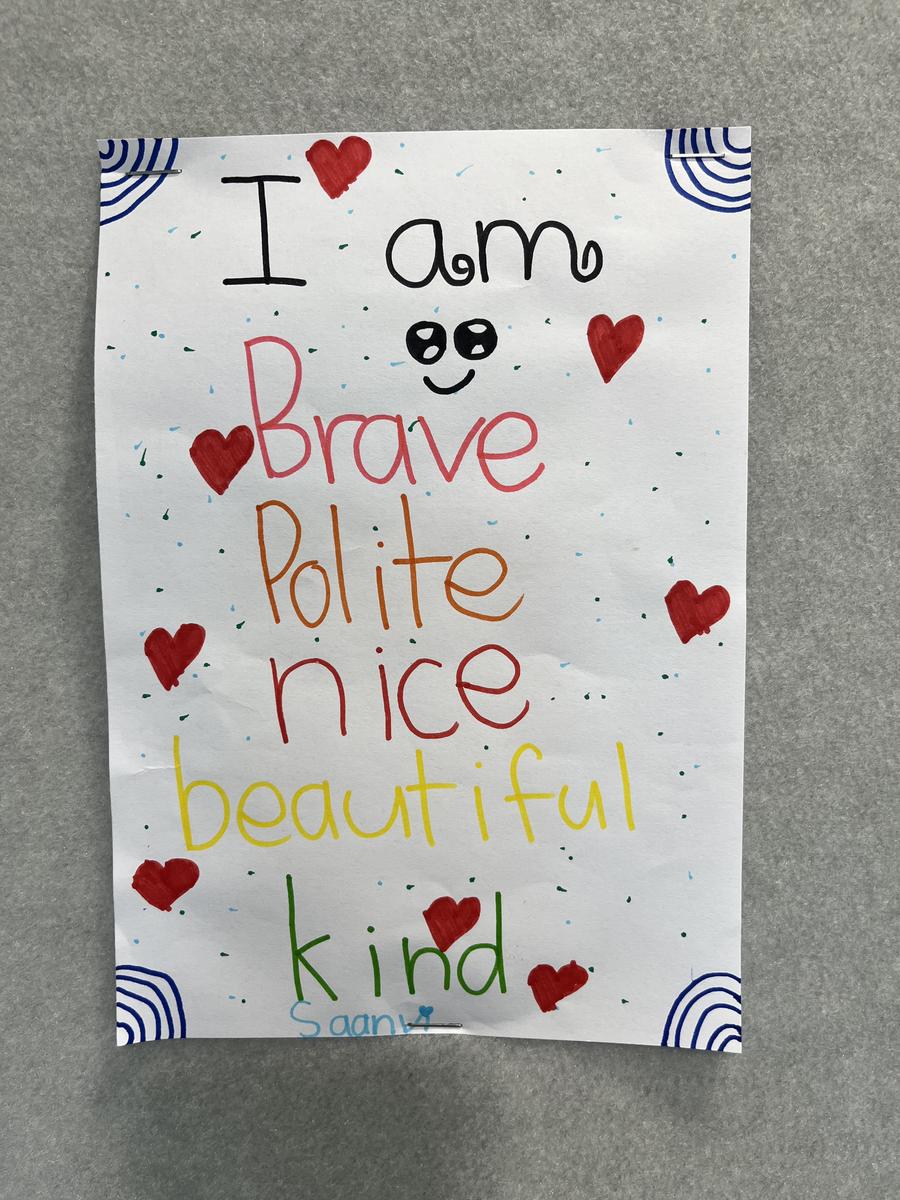 I am
Brave
Polite
nice
beautiful
kind
Saanvi